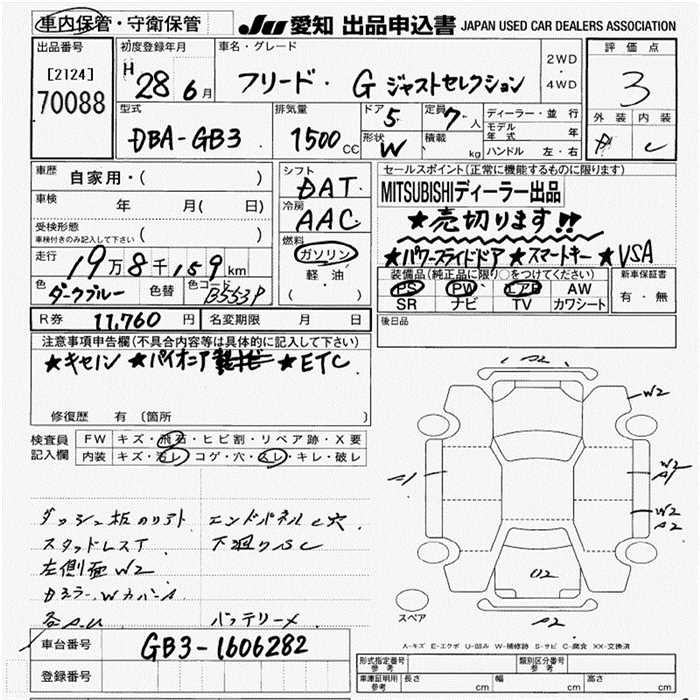 車内保管・守衛保管
JU 愛知 出品申込書 JAPAN USED CAR DEALERS ASSOCIATION
出品番号
[2124]
70088
初度登録年月
H 28年 6月
車名・グレード
フリード・G ジャストセレクション
2WD
・
4WD
評価点
3
外装 内装
C
型式
DBA-GB3
排気量
1500 CC
ドア 5
形状 W
定員 7人
積載 kg
ディーラー・並行
モデル年式 年
ハンドル 左・右
車歴
自家用・( )
車検
年 月( 日)
受検形態
車検付きのみ記入して下さい ( )
走行
19万8千159km
色 ダークブルー
色替
色コード B553P
シフト
DAT
冷房
AAC
燃料
ガソリン
軽油
( )
セールスポイント(正常に機能するものに限ります)
MITSUBISHIディーラー出品
★売切ります!!
★パワースライドドア ★スマートキー ★VSA
装備品(純正品に限り○をつけてください)
PS PW エアB AW
SR ナビ TV カワシート
新車保証書
有・無
R券 11,760円
名変期限 月 日
後日品
注意事項申告欄(不具合内容等は具体的に記入して下さい)
★キセノン ★パイオニア ★ETC
修復歴 有 (箇所 )
検査員
記入欄
FW キズ・飛石・ヒビ割・リペア跡・X要
内装 キズ・汚レ・コゲ・穴・スレ・キレ・破レ
ダッシュ板のリアト エンドパネルC穴
スタッドレスT 下廻りSC
左側面W2
各A.U バッテリーメ
A2
W2
W2
A1
W2
A2
U2
A2
スペア
A-キズ E-エクボ U-凹み W-補修跡 S-サビ C-腐食 XX-交換済
車台番号 GB3-1606282
登録番号
形式指定番号
参考
類別区分番号
参考
車庫証明用
参考
長さ cm 幅 cm 高さ cm